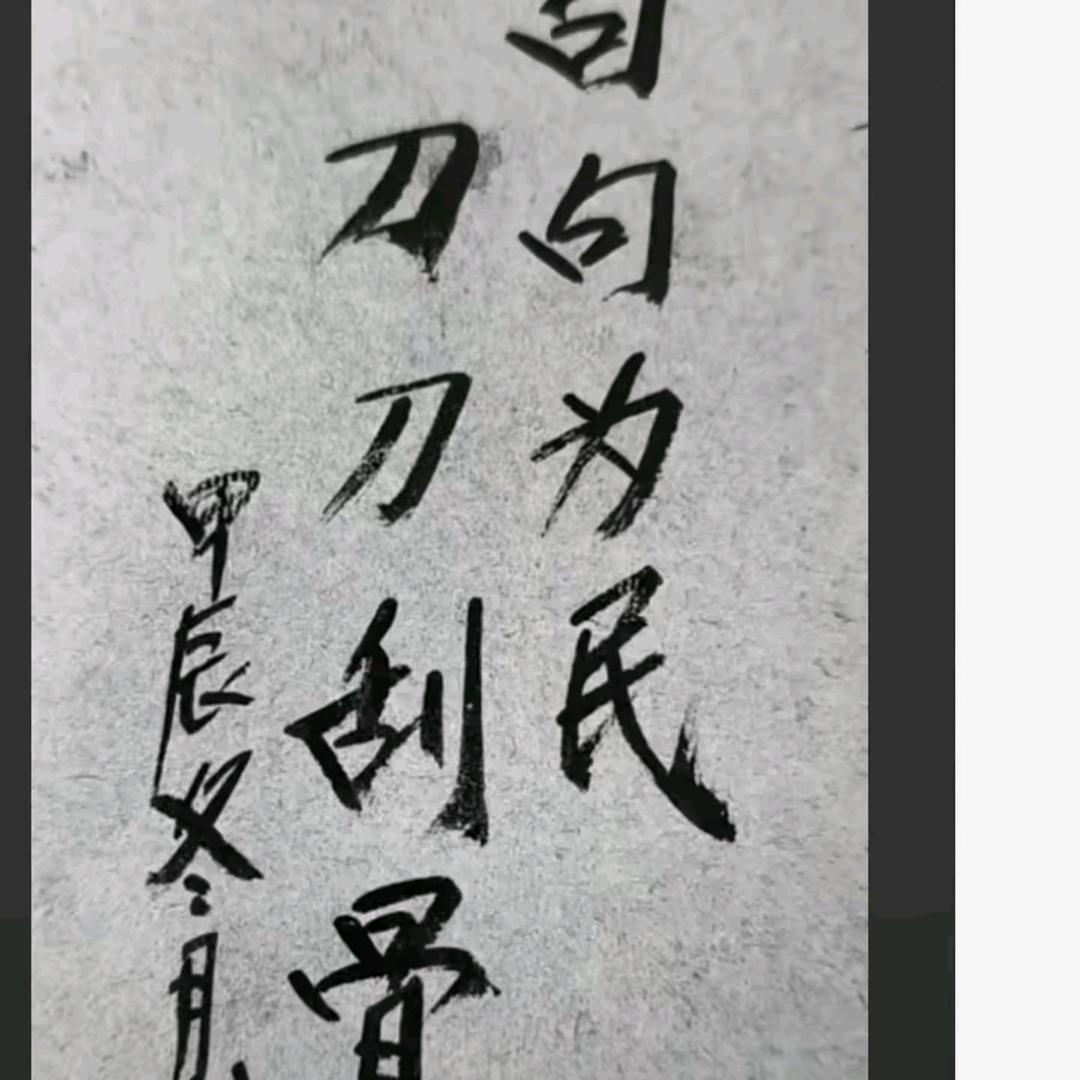 句句为民
刀刀刮骨
甲辰冬月